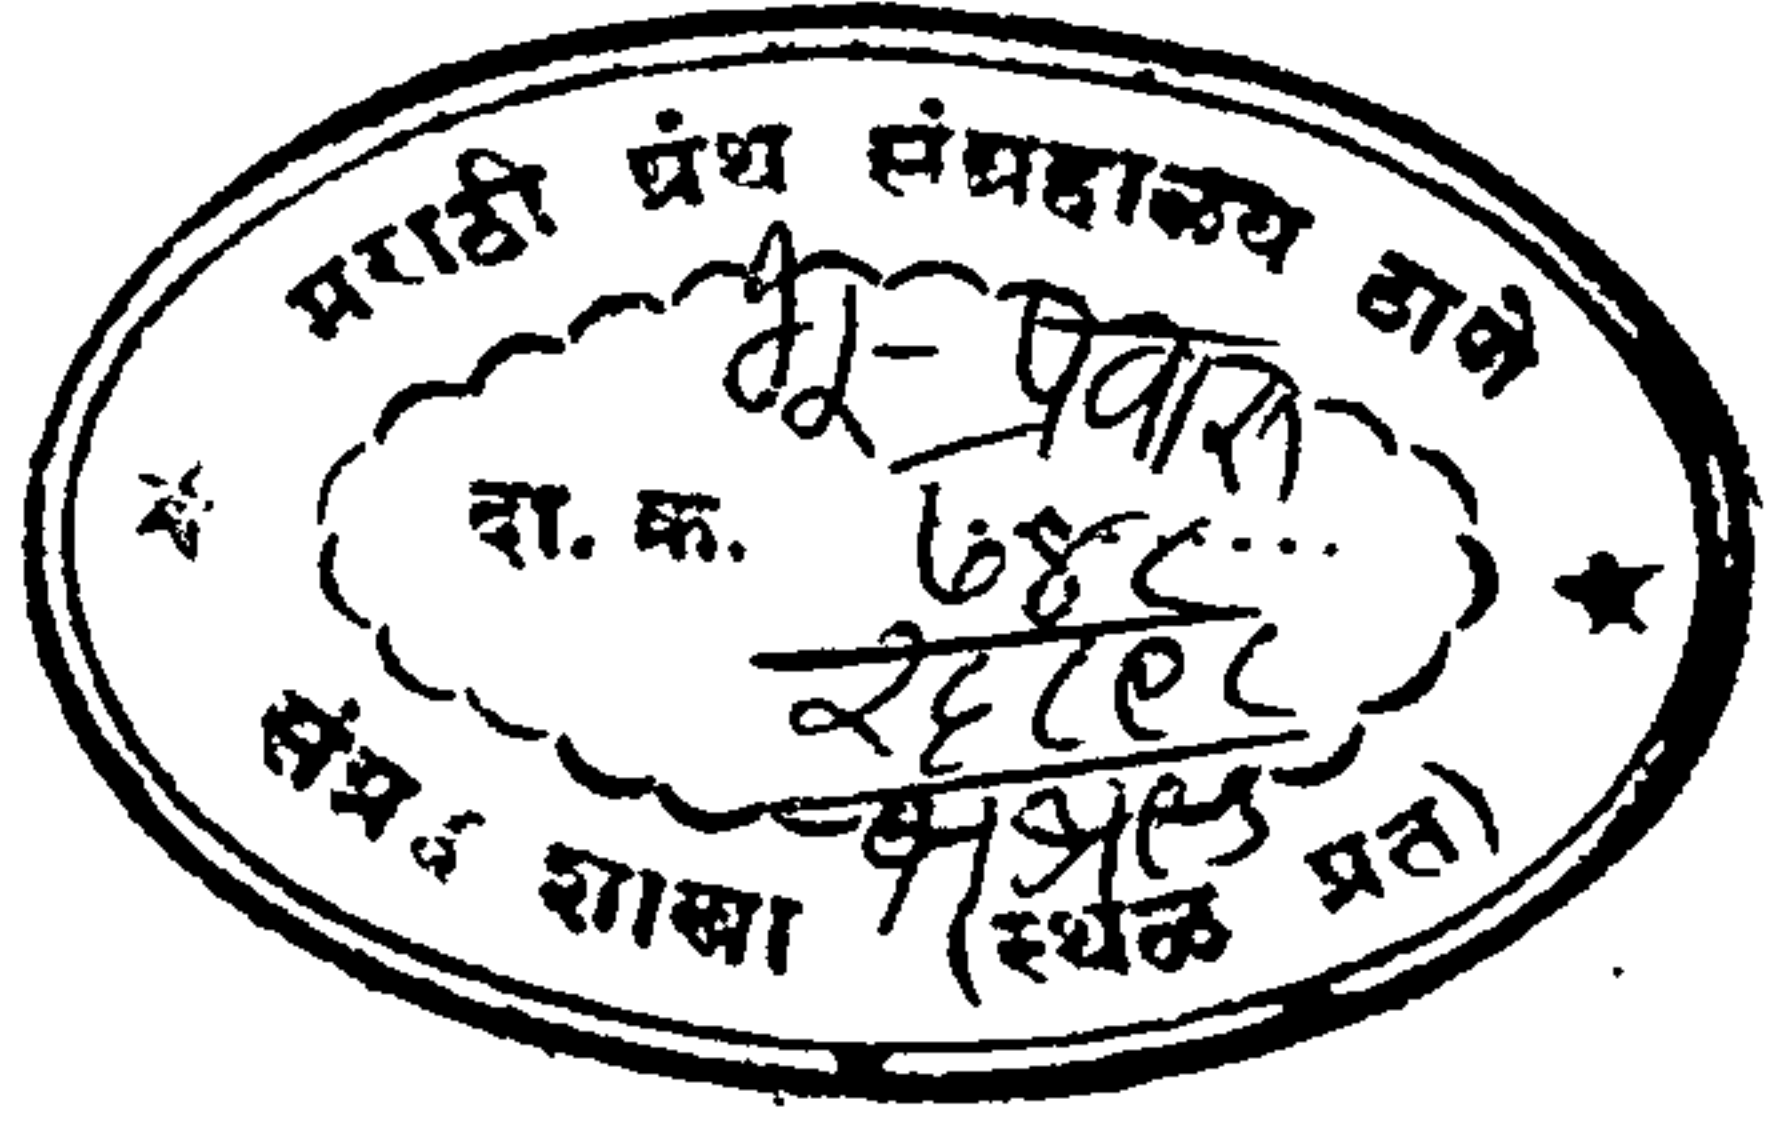 मराठी ग्रंथ संग्रहालय ठाणे
भू-प्रवास
दा. क्र. ७४८...
२६८९८
संग्रह शाखा (स्थळ प्रत)